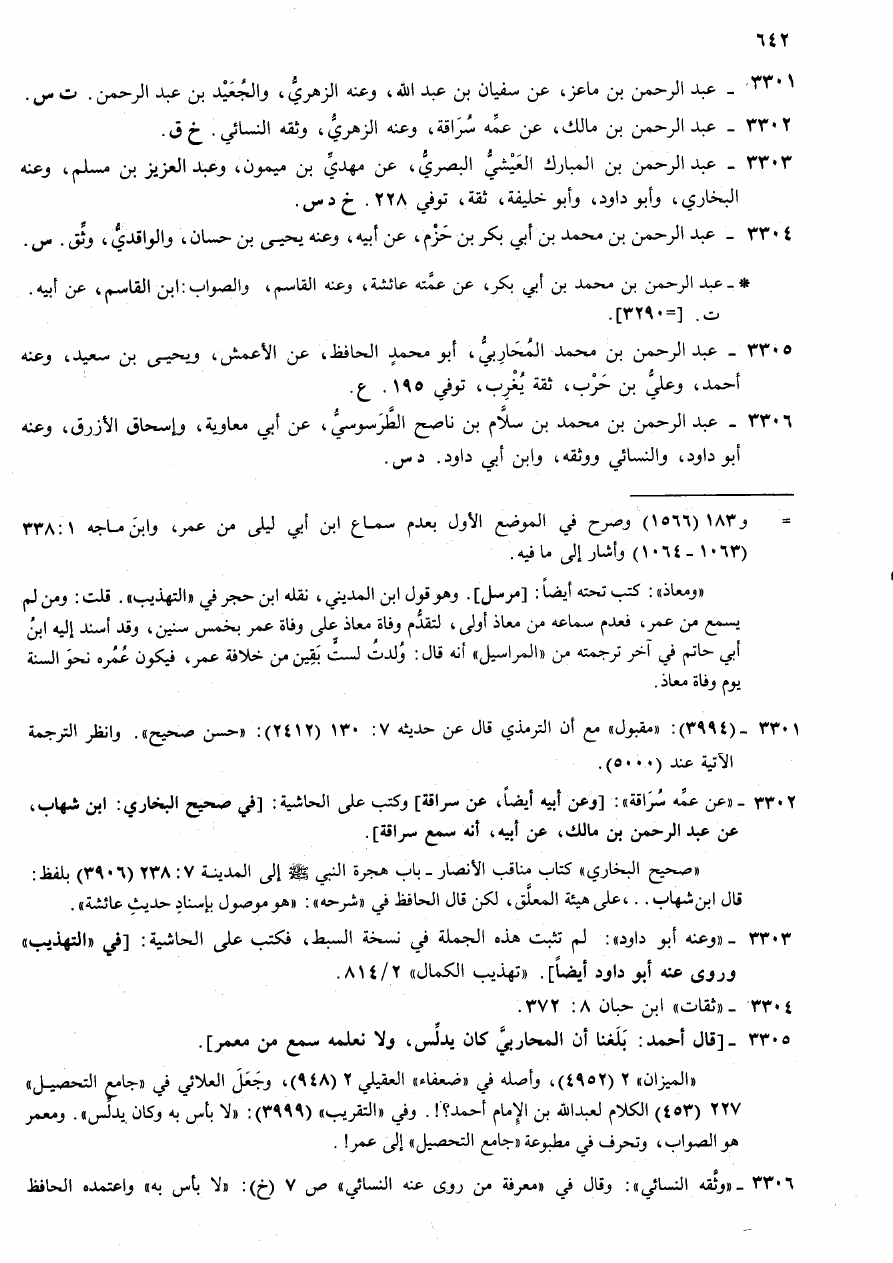 ٦٤٢
٣٣٠١ - عبد الرحمن بن ماعز، عن سفيان بن عبد الله، وعنه الزهريُّ، والجُعَيْد بن عبد الرحمن. ت س.
٣٣٠٢ - عبد الرحمن بن مالك، عن عمِّه سُرَاقة، وعنه الزهريُّ، وثقه النسائي. خ ق.
٣٣٠٣ - عبد الرحمن بن المبارك العَيْشيُّ البصريُّ، عن مهديِّ بن ميمون، وعبد العزيز بن مسلم، وعنه
البخاري، وأبو داود، وأبو خليفة، ثقة، توفي ٢٢٨. خ د س.
٣٣٠٤ - عبد الرحمن بن محمد بن أبي بكر بن حَزْم، عن أبيه، وعنه يحيى بن حسان، والواقديُّ، وثِّق. س.
* - عبد الرحمن بن محمد بن أبي بكر، عن عمَّته عائشة، وعنه القاسم، والصواب: ابن القاسم، عن أبيه.
ت. [=٣٢٩٠].
٣٣٠٥ - عبد الرحمن بن محمد المُحَاربيُّ، أبو محمدٍ الحافظ، عن الأعمش، ويحيى بن سعيد، وعنه
أحمد، وعليُّ بن حَرْب، ثقة يُغْرِب، توفي ١٩٥. ع.
٣٣٠٦ - عبد الرحمن بن محمد بن سلَّام بن ناصح الطَّرَسوسيُّ، عن أبي معاوية، وإسحاق الأزرق، وعنه
أبو داود، والنسائي ووثقه، وابن أبي داود. د س.
= و١٨٣ (١٥٦٦) وصرح في الموضع الأول بعدم سماع ابن أبي ليلى من عمر، وابنَ ماجه ١: ٣٣٨
(١٠٦٣ - ١٠٦٤) وأشار إلى ما فيه.
«ومعاذ»: كتب تحته أيضاً: [مرسل]. وهو قول ابن المديني، نقله ابن حجر في «التهذيب». قلت: ومن لم
يسمع من عمر، فعدم سماعه من معاذ أولى، لتقدُّم وفاة معاذ على وفاة عمر بخمس سنين، وقد أسند إليه ابنُ
أبي حاتم في آخر ترجمته من «المراسيل» أنه قال: وُلدتُ لستٍّ بَقِين من خلافة عمر، فيكون عُمُره نحوَ السنة
يوم وفاة معاذ.
٣٣٠١ - (٣٩٩٤): «مقبول» مع أن الترمذي قال عن حديثه ٧: ١٣٠ (٢٤١٢): «حسن صحيح». وانظر الترجمة
الآتية عند (٥٠٠٠).
٣٣٠٢ - «عن عمِّه سُرَاقة»: [وعن أبيه أيضاً، عن سراقة] وكتب على الحاشية: [في صحيح البخاري: ابن شهاب،
عن عبد الرحمن بن مالك، عن أبيه، أنه سمع سراقة].
«صحيح البخاري» كتاب مناقب الأنصار - باب هجرة النبي ﷺ إلى المدينة ٧: ٢٣٨ (٣٩٠٦) بلفظ:
قال ابن شهاب..، على هيئة المعلَّق، لكن قال الحافظ في «شرحه»: «هو موصول بإسنادِ حديثِ عائشة».
٣٣٠٣ - «وعنه أبو داود»: لم تثبت هذه الجملة في نسخة السبط، فكتب على الحاشية: [في «التهذيب»
وروى عنه أبو داود أيضاً]. «تهذيب الكمال» ٨١٤/٢.
٣٣٠٤ - «ثقات» ابن حبان ٨: ٣٧٢.
٣٣٠٥ - [قال أحمد: بَلَغنا أن المحاربيَّ كان يدلِّس، ولا نعلمه سمع من معمر].
«الميزان» ٢ (٤٩٥٢)، وأصله في «ضعفاء» العقيلي ٢ (٩٤٨)، وجَعَلَ العلائي في «جامع التحصيل»
٢٢٧ (٤٥٣) الكلام لعبدالله بن الإمام أحمد؟!. وفي «التقريب» (٣٩٩٩): «لا بأس به وكان يدلِّس». ومعمر
هو الصواب، وتحرف في مطبوعة «جامع التحصيل» إلى عمر!.
٣٣٠٦ - «وثَّقه النسائي»: وقال في «معرفة من روى عنه النسائي» ص ٧ (خ): «لا بأس به» واعتمده الحافظ